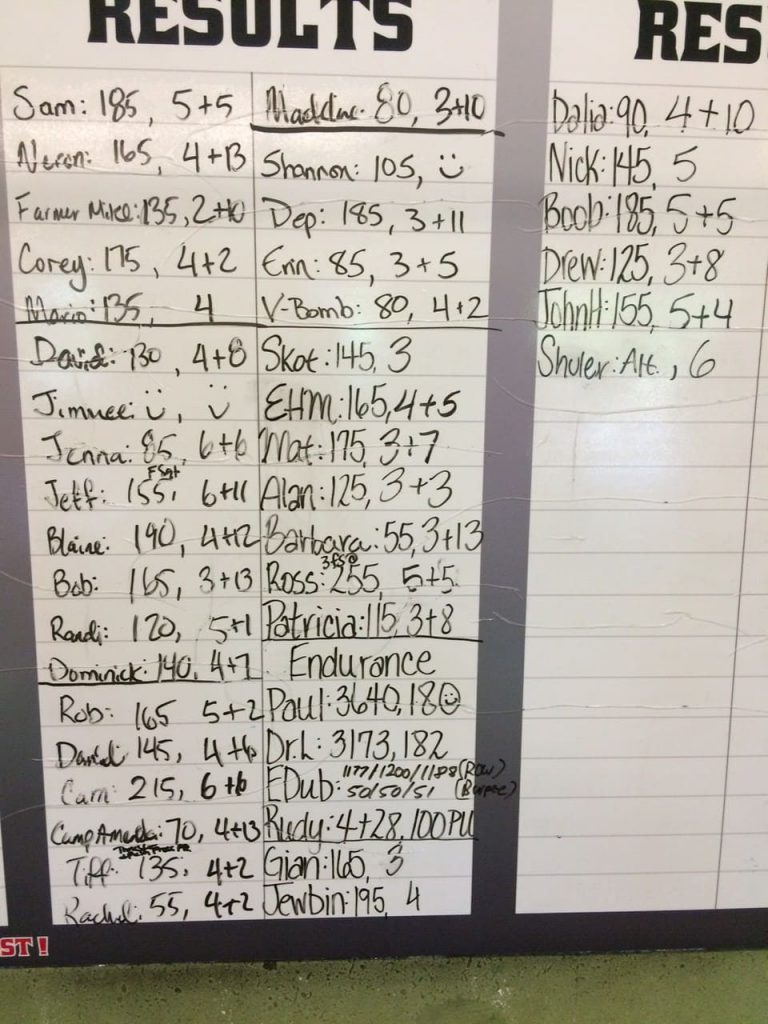 RESULTS
Sam: 185, 5+5
165, 4+13
Farmer Mike: 135, 2+10
Corey: 175, 4+2
Mario: 135, 4
David: 130, 4+8
Jimmee: ّت, ّت
Jenna: 85, 6+6
FSqt
Jeff: 155, 6+11
Blaine: 190, 4+12
Bob: 165, 3+13
Randi: 120, 5+1
Dominick: 140, 4+7
Rob: 165 5+2
Daniel: 145, 4+6
Cam: 215, 6+6
CampAmanda: 70, 4+13
Tiff: 135, 4+2
Rachel: 55, 4+2
Madeline: 80, 3+10
Shannon: 105, ت
Dep: 185, 3+11
Erin: 85, 3+5
V-Bomb: 80, 4+2
Skot: 145, 3
EHM: 165, 4+5
Mat: 175, 3+7
Alan: 125, 3+3
Barbara: 55, 3+13
3fs@
Ross: 255, 5+5
Patricia: 115, 3+8
Endurance
Paul: 3640, 180☺
Dr.L: 3173, 182
EDub: 1177/1200/1188 (Row)
50/50/51 (Burpee)
Rudy: 4+28, 100PU
Gian: 165, 3
Jewbin: 195, 4
RES
Dalia: 90, 4+10
Nick: 145, 5
Boob: 185, 5+5
Drew: 125, 3+8
JohnH: 155, 5+4
Shuler: Alt., 6
ST!